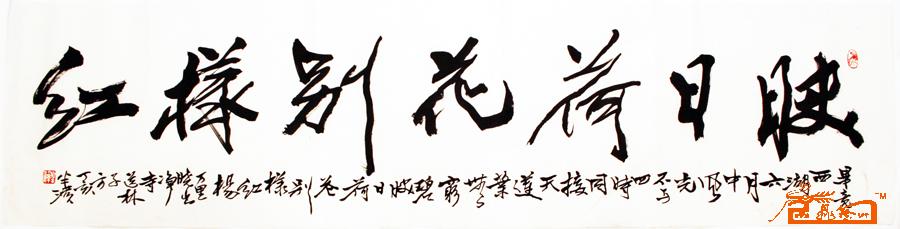 映日荷花别樣红
畢竟西湖六月中风光不与四时同接天蓮葉无穷碧映日荷花别樣红楊万里曉出净慈寺送林子方